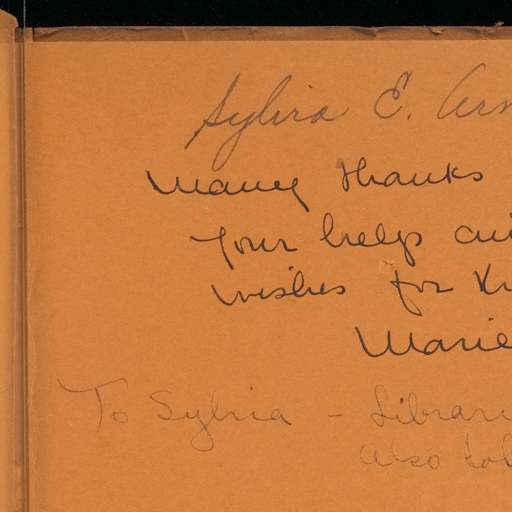 Sylvia E. Arn
Many thanks
your help an
wishes for
Marie
To Sylvia - Librari
Also